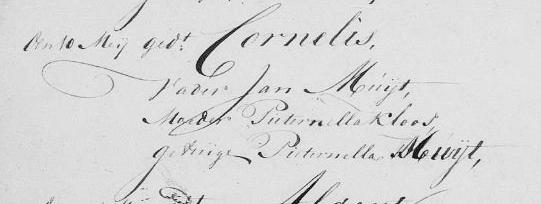 den 10 Meij gedt. Cornelis,
Vader Jan Muijt,
Moeder Pieternella Kloos,
getuige Pieternella Muijt,